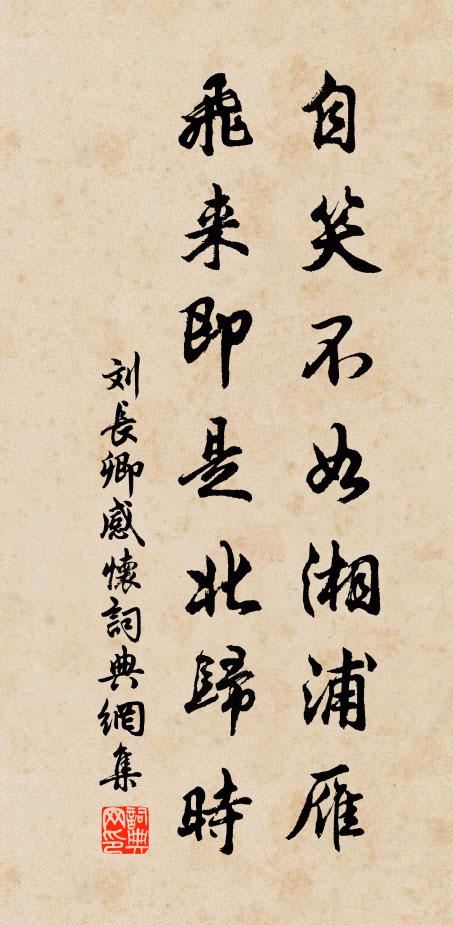 自笑不如湘浦雁
飛来即是北歸時
刘長卿感懷詞典網集
詞典网印